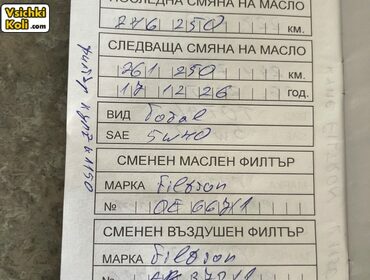 Vsichki
Koli.com
ПОСЛЕДНА СМЯНА НА МАСЛО
246 250 КМ.
СЛЕДВАЩА СМЯНА НА МАСЛО
261 250 КМ.
17 12 26 год.
ВИД Total
SAE 5w40
СМЕНЕН МАСЛЕН ФИЛТЪР
МАРКА Filtron
№ OE 667/1
СМЕНЕН ВЪЗДУШЕН ФИЛТЪР
МАРКА Filtron
№
филтър купе k1150